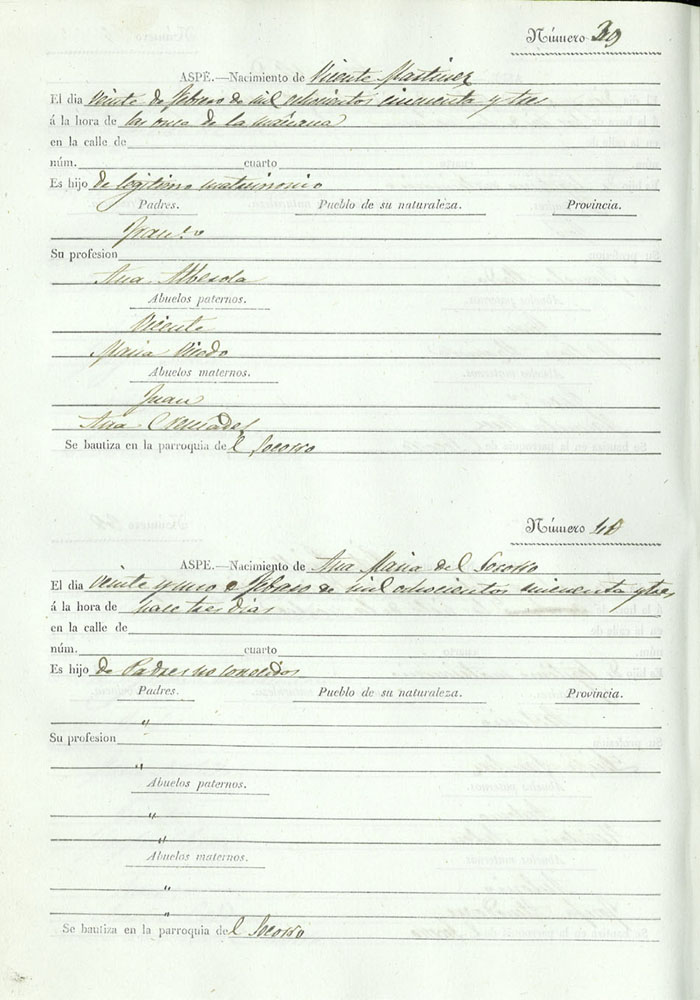 Número 39
ASPE.—Nacimiento de Vicente Martinez
El dia veinte de febrero de mil ochocientos cincuenta y tres
á la hora de las once de la mañana
en la calle de
núm. cuarto
Es hijo de legitimo matrimonio
Padres. Pueblo de su naturaleza. Provincia.
Su profesion
Ana
Abuelos paternos.
Vicente
Maria
Abuelos maternos.
Juan
Ana
Se bautiza en la parroquia del Socorro
Número 40
ASPE.—Nacimiento de Ana Maria del Socorro
El dia veinte y uno de febrero de mil ochocientos cincuenta y tres
á la hora de hace tres dias
en la calle de
núm. cuarto
Es hijo de Padres no conocidos
Padres. Pueblo de su naturaleza. Provincia.
"
Su profesion
"
Abuelos paternos.
"
"
Abuelos maternos.
"
"
Se bautiza en la parroquia del Socorro